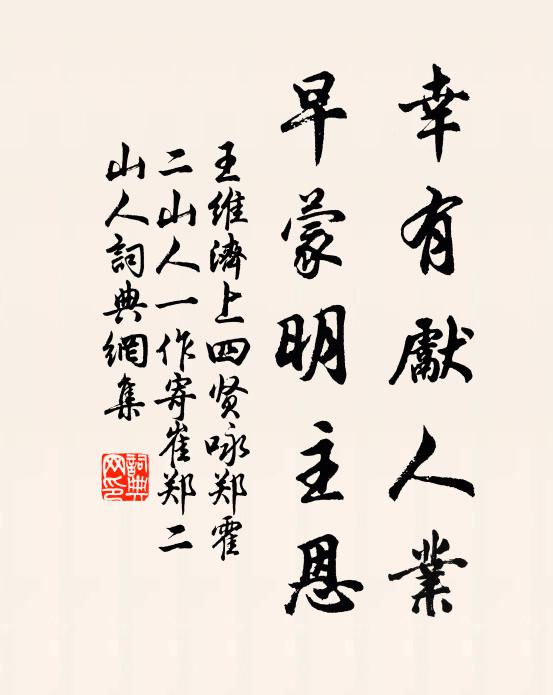 幸有獻人業
早蒙明主恩
王維濟上四贤咏郑霍
二山人一作寄崔郑二
山人詞典網集
詞典网印